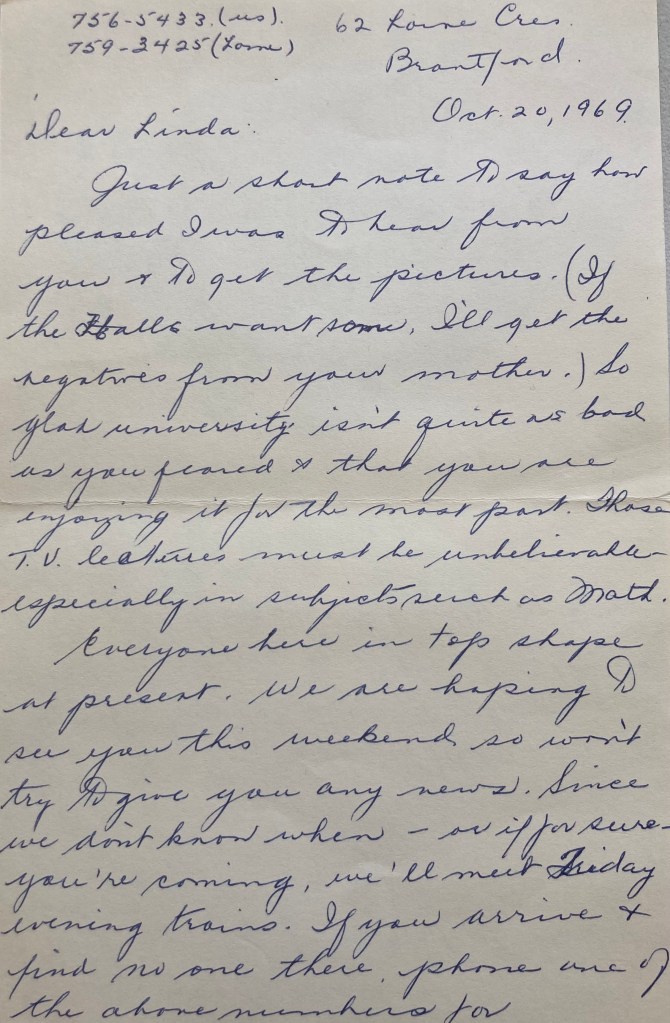 756-5433. (us).
759-3425 (Lorne)
62 Lorne Cres.
Brantford.
Oct. 20, 1969.
Dear Linda:
Just a short note to say how
pleased I was to hear from
you & to get the pictures. (If
the Halls want some, I'll get the
negatives from your mother.) So
glad university isn't quite as bad
as you feared & that you are
enjoying it for the most part. Those
T.V. lectures must be unbelievable -
especially in subjects such as Math.
Everyone here in top shape
at present. We are hoping to
see you this weekend so won't
try to give you any news. Since
we don't know when - or if for sure -
you're coming, we'll meet Friday
evening trains. If you arrive &
find no one there, phone one of
the above numbers for